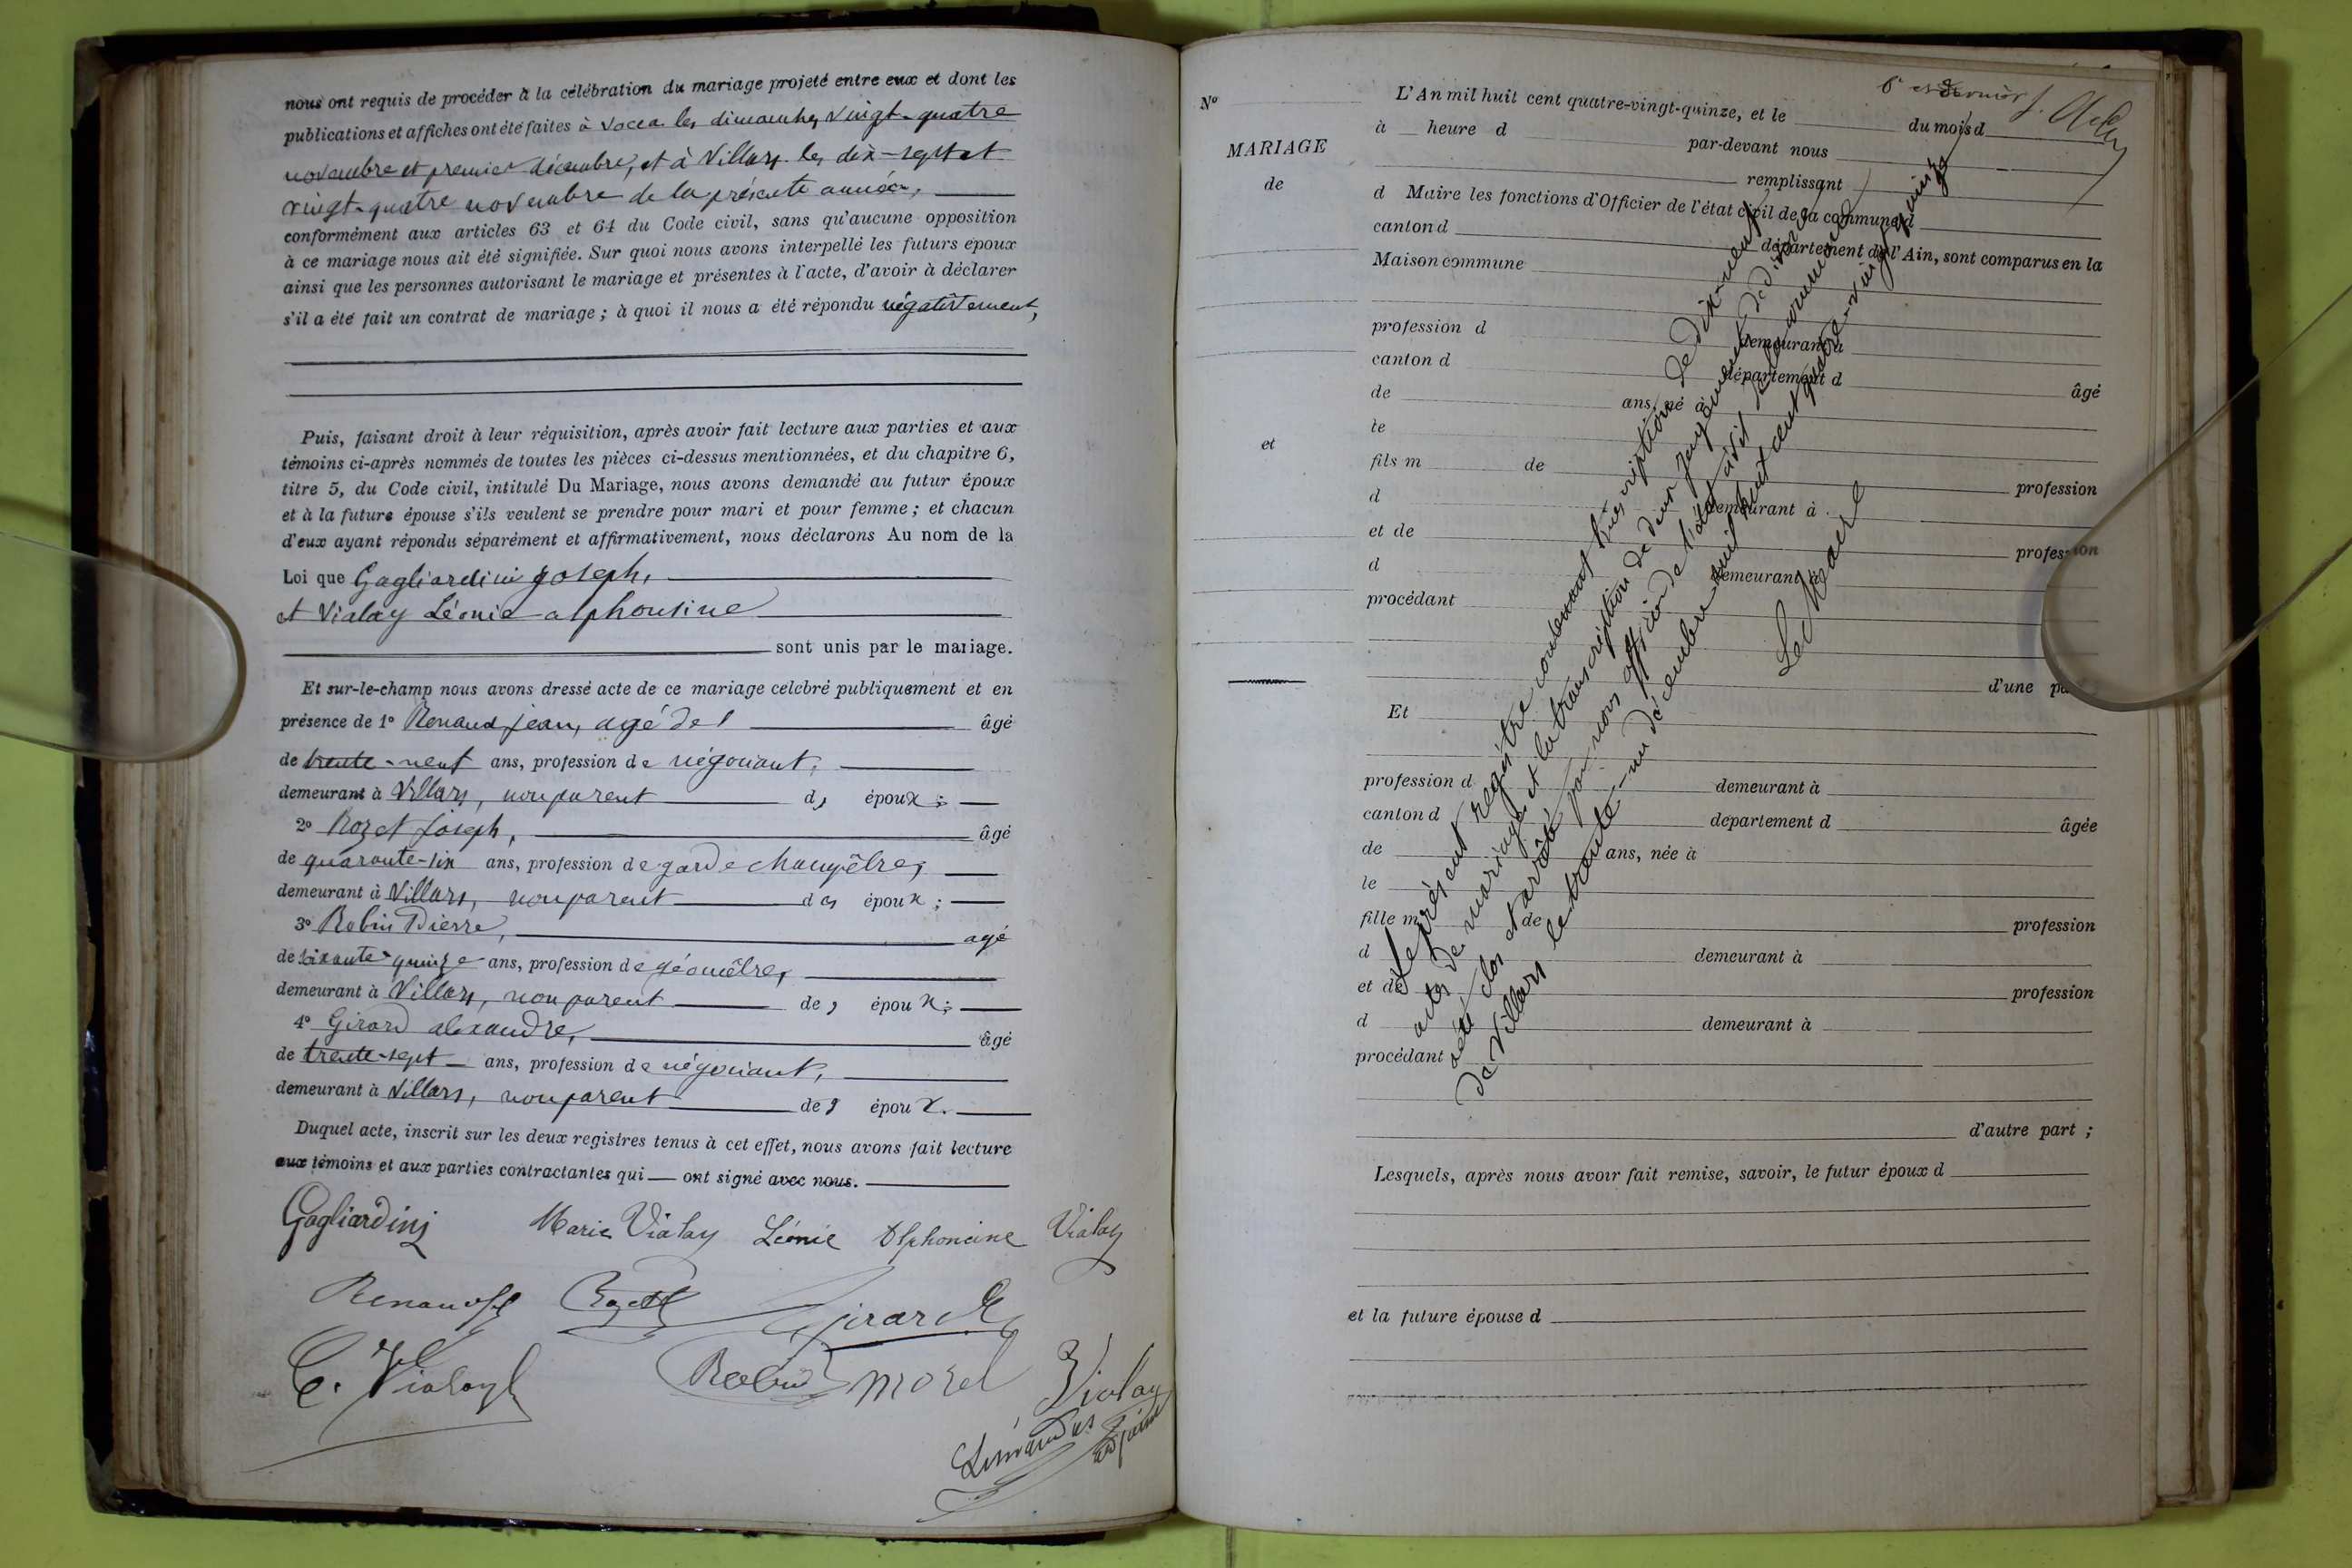 nous ont requis de procéder à la célébration du mariage projeté entre eux et dont les
publications et affiches ont été faites à Vocca les dimanches vingt-quatre
novembre et premier décembre, et à Villars les dix-sept et
vingt-quatre novembre de la présente année,
conformément aux articles 63 et 64 du Code civil, sans qu'aucune opposition
à ce mariage nous ait été signifiée. Sur quoi nous avons interpellé les futurs époux
ainsi que les personnes autorisant le mariage et présentes à l'acte, d'avoir à déclarer
s'il a été fait un contrat de mariage ; à quoi il nous a été répondu négativement,
Puis, faisant droit à leur réquisition, après avoir fait lecture aux parties et aux
témoins ci-après nommés de toutes les pièces ci-dessus mentionnées, et du chapitre 6,
titre 5, du Code civil, intitulé Du Mariage, nous avons demandé au futur époux
et à la future épouse s'ils veulent se prendre pour mari et pour femme ; et chacun
d'eux ayant répondu séparément et affirmativement, nous déclarons Au nom de la
Loi que Gagliardini joseph,
et Vialay Léonie alphonsine
sont unis par le mariage.
Et sur-le-champ nous avons dressé acte de ce mariage célébré publiquement et en
présence de 1º Renaud jean, agé de âgé
de trente-neuf ans, profession de négociant,
demeurant à Villars, non parent des époux ;
2º Rozet joseph, âgé
de quarante-six ans, profession de garde champêtre,
demeurant à Villars, non parent des époux ;
3º Robin Pierre, agé
de soixante-quinze ans, profession de géomètre,
demeurant à Villars, non parent des époux ;
4º Girard alexandre, âgé
de trente-sept ans, profession de négociant,
demeurant à Villars, non parent des époux.
Duquel acte, inscrit sur les deux registres tenus à cet effet, nous avons fait lecture
aux témoins et aux parties contractantes qui ont signé avec nous.
Gagliardini Marie Vialay Léonie Alphoncine Vialay
Renaud Rozet Girard
C. Vialay Robin Morel Vialay
adjoint
6e et dernier f.
Nº
MARIAGE
de
et
L'An mil huit cent quatre-vingt-quinze, et le du mois d
à heure d par-devant nous
remplissant
d Maire les fonctions d'Officier de l'état civil de la commune d
canton d département de l'Ain, sont comparus en la
Maison commune
profession d demeurant à
canton d département d âgé
de ans, né à
le
fils m de profession
d demeurant à
et de profession
d demeurant à
procédant
d'une pa
Et
profession d demeurant à
canton d département d âgée
de ans, née à
le
fille m de profession
d demeurant à
et de profession
d demeurant à
procédant
d'autre part ;
Lesquels, après nous avoir fait remise, savoir, le futur époux d
et la future épouse d
Le présent registre contenant inscription de dix-neuf
actes de mariage et la transcription de deux jugements de divorce
a été clos et arrêté par nous officier de l'état civil de la commune
de Villars le trente-un décembre mil huit cent quatre-vingt quinze
Le Maire